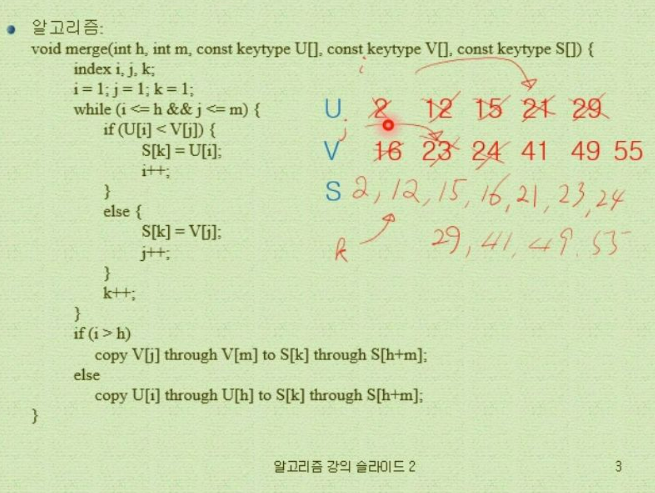 알고리즘:
void merge(int h, int m, const keytype U[], const keytype V[], const keytype S[]) {
index i, j, k;
i = 1; j = 1; k = 1;
while (i <= h && j <= m) {
if (U[i] < V[j]) {
S[k] = U[i];
i++;
}
else {
S[k] = V[j];
j++;
}
k++;
}
if (i > h)
copy V[j] through V[m] to S[k] through S[h+m];
else
copy U[i] through U[h] to S[k] through S[h+m];
}
i
U 2 12 15 21 29
j
V 16 23 24 41 49 55
S 2, 12, 15, 16, 21, 23, 24
k 29, 41, 49, 55
알고리즘 강의 슬라이드 2
3